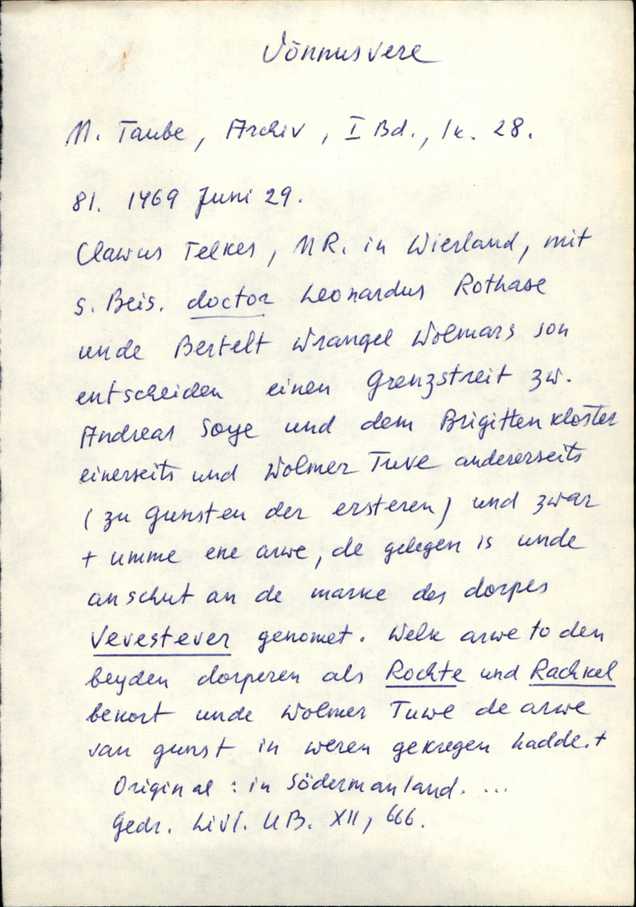 Võnnusvere
M. Taube, Archiv, I Bd., lk. 28.
81. 1469 Juni 29.
Clawus Telkes, MR. in Wierland, mit
s. Beis. doctor Leonardus Rothase
unde Bertelt Wrangel Wolmars son
entscheiden einen Grenzstreit zw.
Andreas Soye und dem Brigittenkloster
einerseits und Wolmer Tuve andererseits
(zu gunsten der ersteren) und zwar
+ umme ene arwe, de gelegen is unde
anschut an de marke des dorpes
Vevestever genomet. Welk arwe to den
beyden dorperen als Rochte und Rachkel
bekort unde Wolmer Tuwe de arwe
van gunst in weren gekregen hadde.+
Original : in Södermanland. ...
Gedr. Livl. UB. XII, 666.